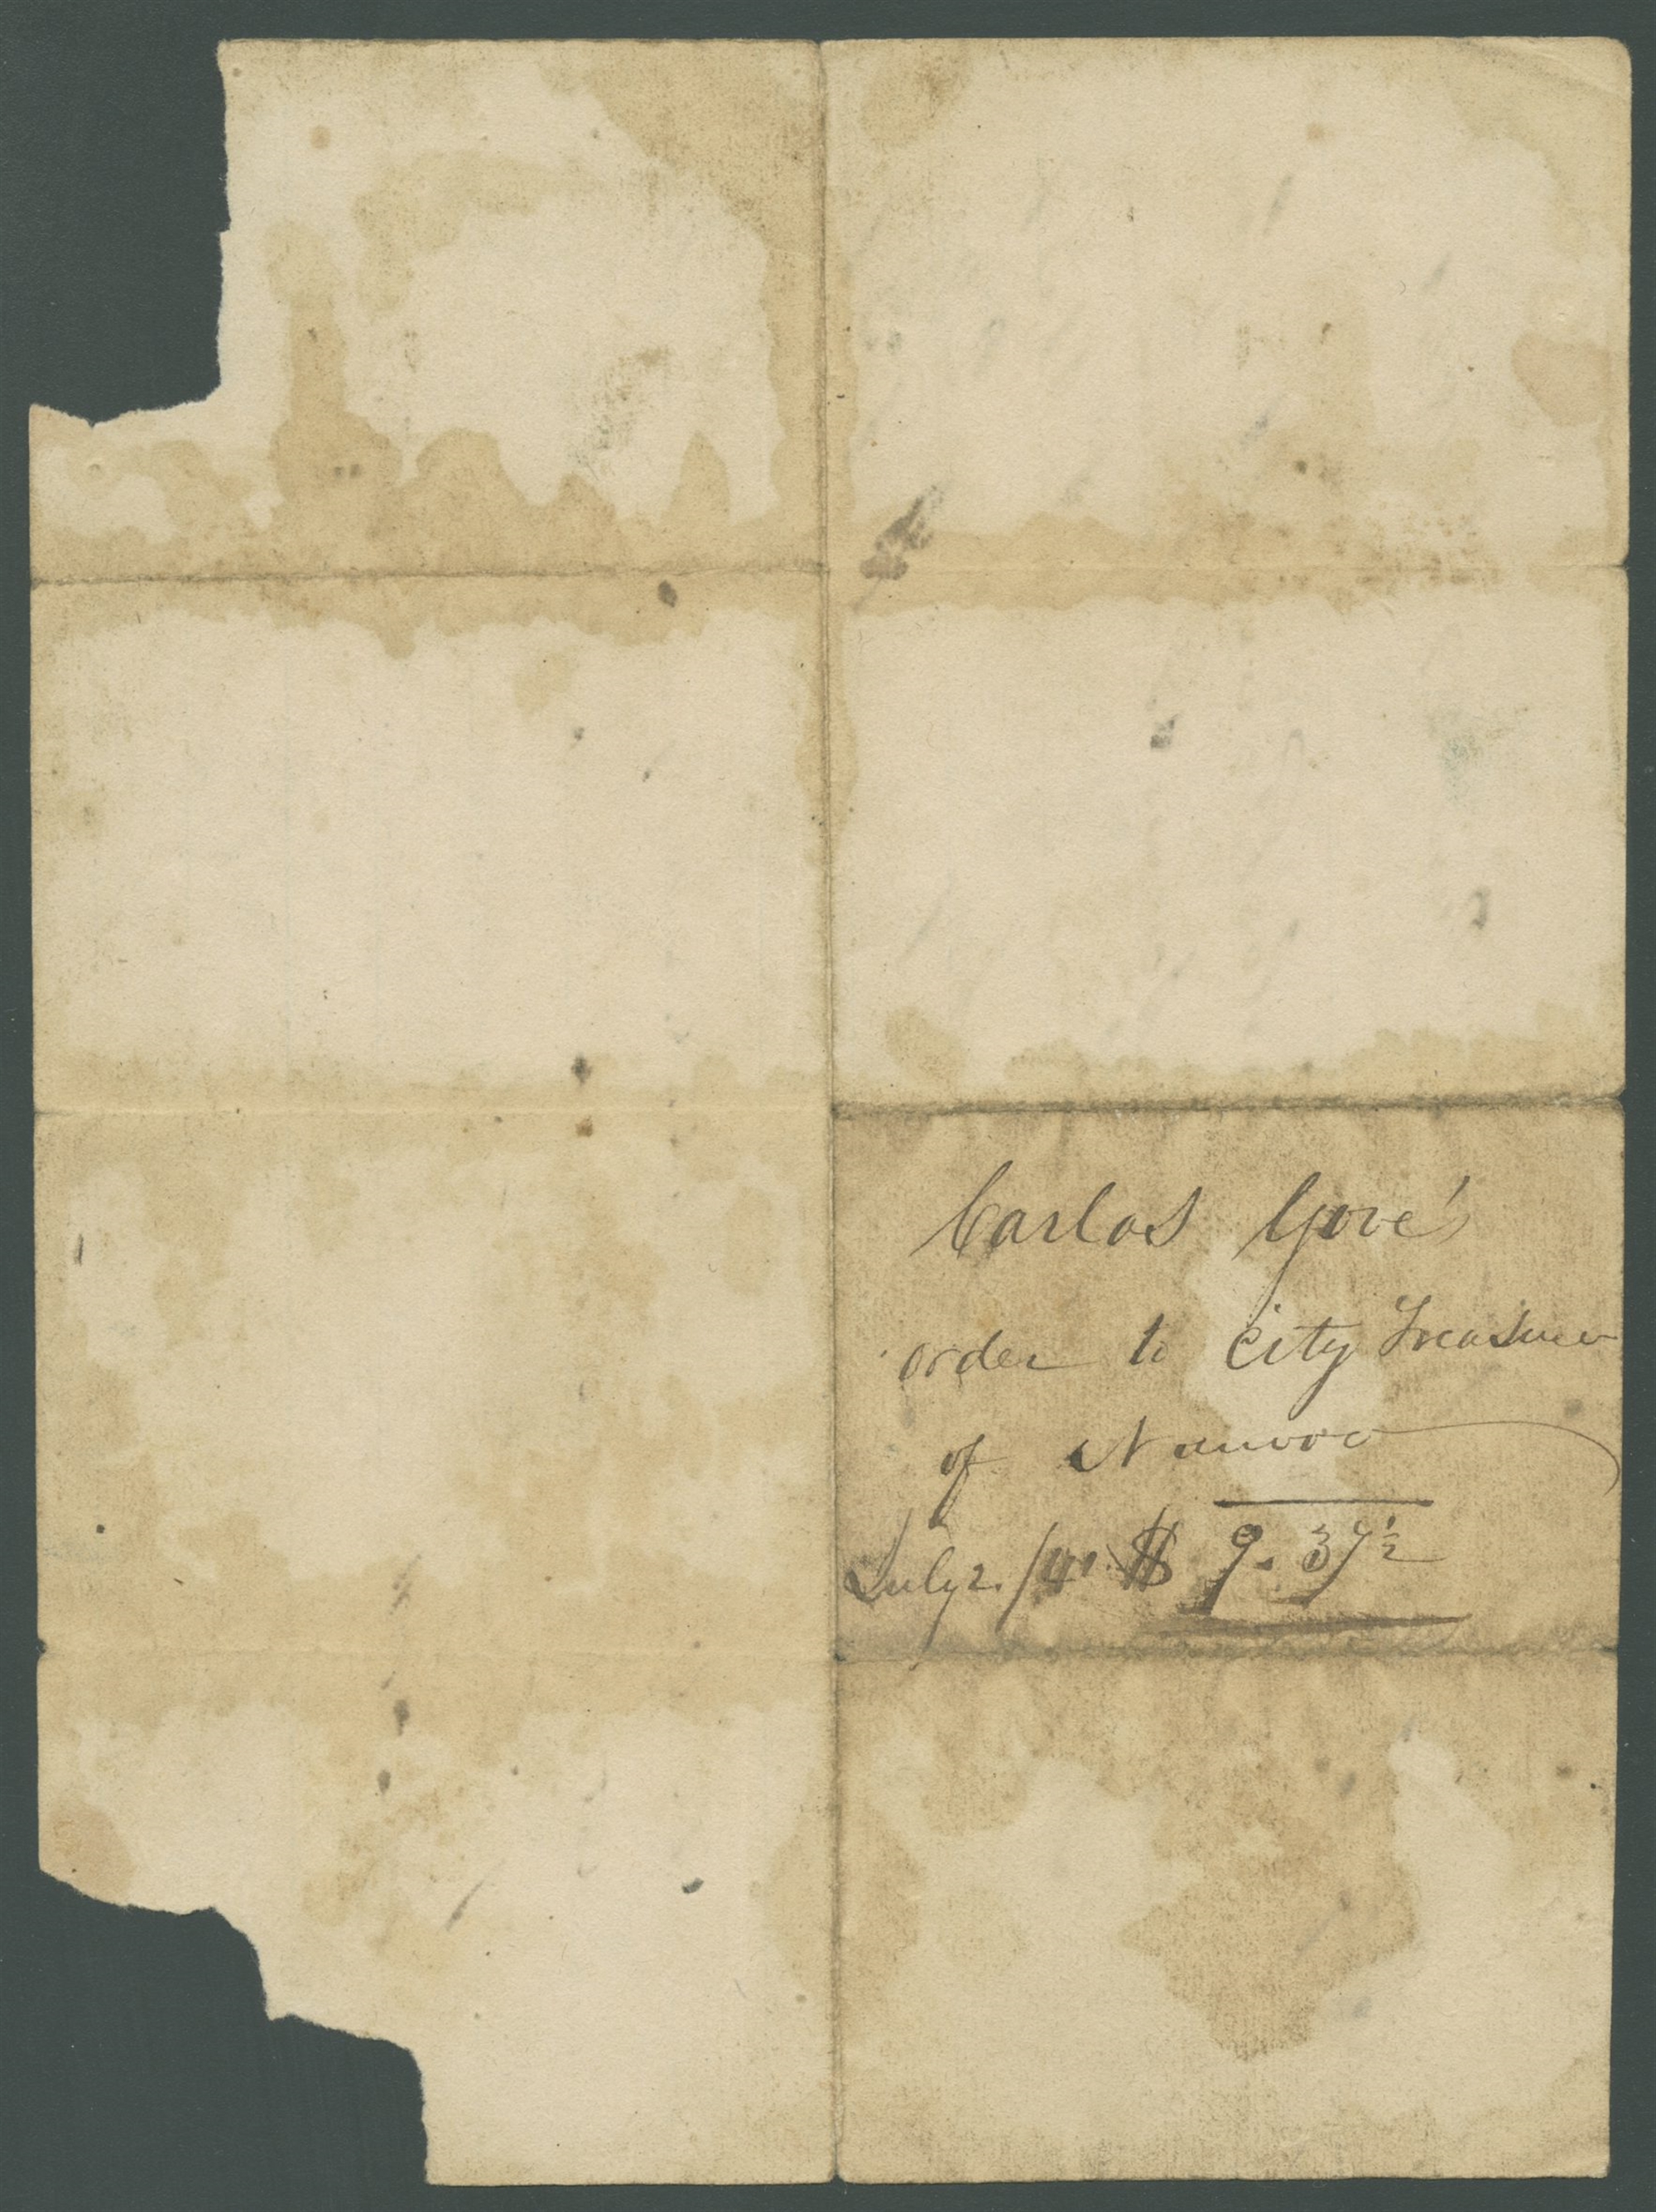 Carlos Gove's
order to City Treasurer
of Nauvoo
July 2. /41. $ 9. 37 1/2